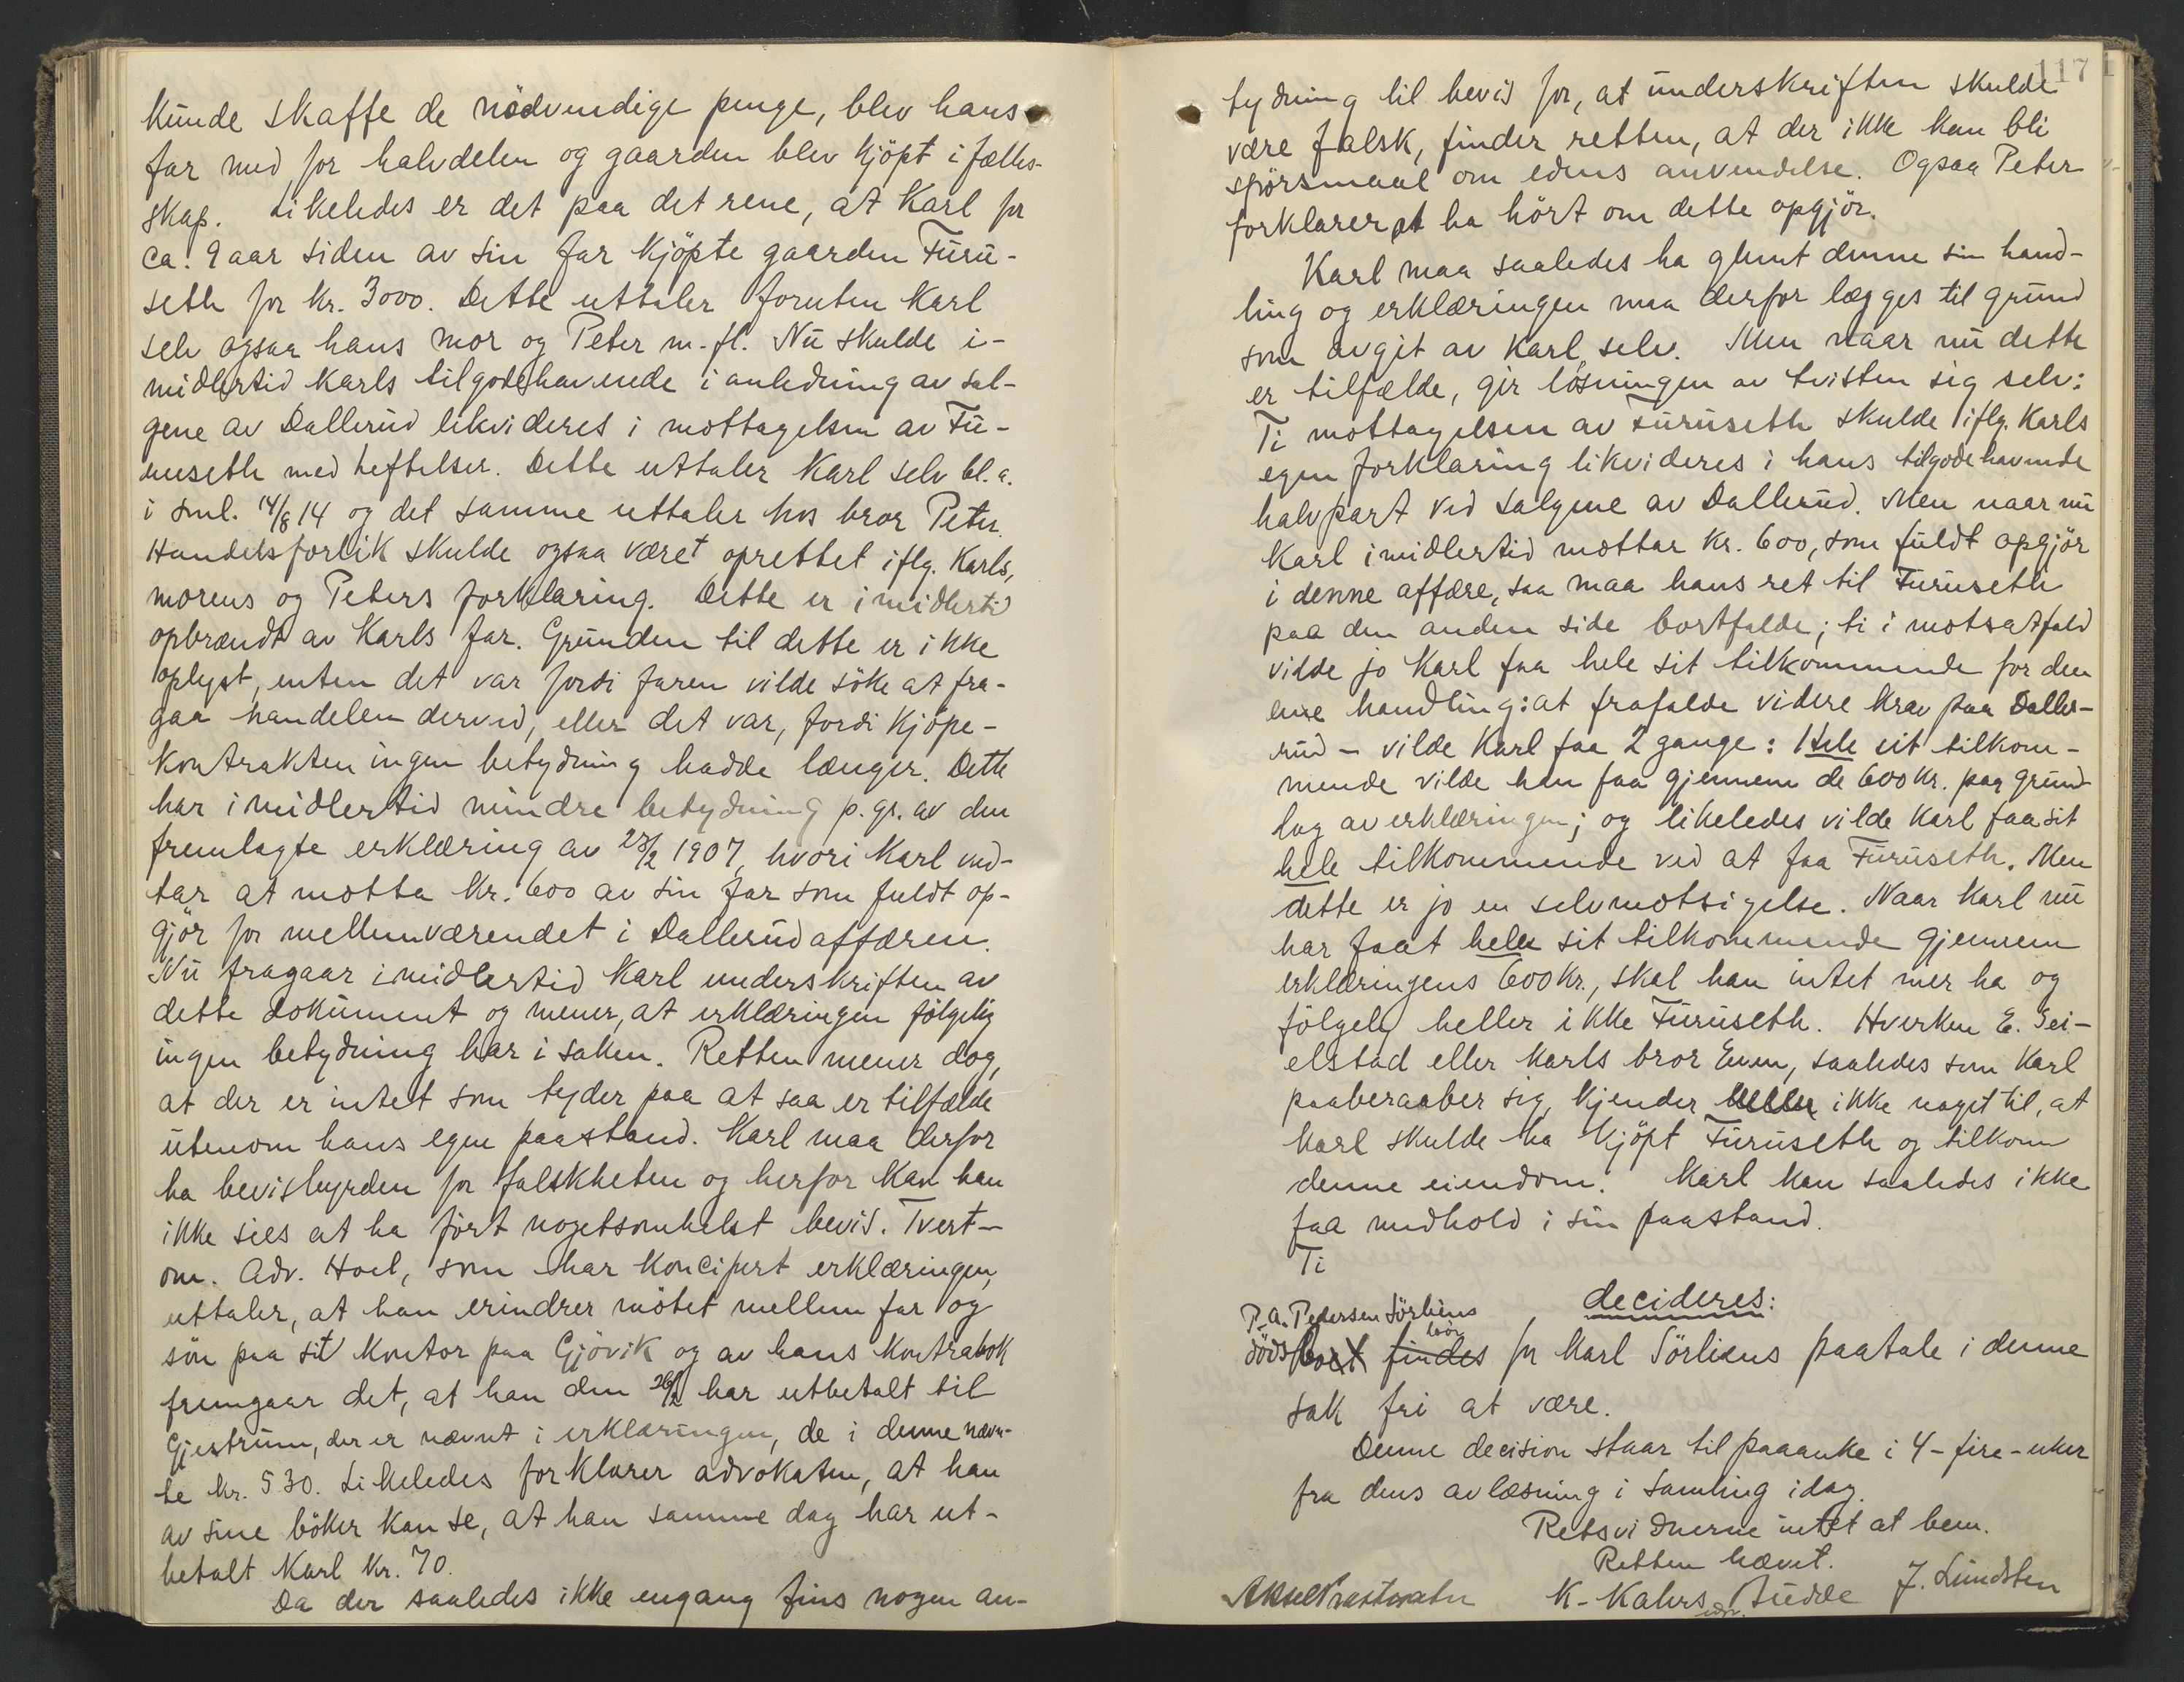 kunde skaffe de nödvendige penge, blev hans
far med for halvdelen og gaarden blev kjöpt i fælles-
skap. Likeledes er det paa det rene, at Karl for
ca. 9 aar siden av sin far kjöpte gaarden Furu-
seth for kr. 3000. Dette uttaler foruten Karl
selv ogsaa hans mor og Peter m. fl. Nu skulde i-
midlertid Karls tilgodehavende i anledning av sal-
gene av Dallerud likvideres i mottagelsen av Fu-
ruseth med heftelser. Dette uttaler Karl selv bl. a.
i sml. 14/8 14 og det samme uttaler hos bror Peter.
Handelsforlik skulde ogsaa været oprettet iflg. Karls,
morens og Peters forklaring. Dette er imidlertid
opbrændt av Karls far. Grunden til dette er ikke
oplyst, enten det var fordi faren vilde söke at fra-
gaa handelen derved, eller det var, fordi kjöpe-
kontrakten ingen betydning hadde længer. Dette
har imidlertid mindre betydning p. gr. av den
fremlagte erklæring av 23/2 1907, hvori Karl ved-
tar at motta kr. 600 av sin far som fuldt op-
gjör for mellemværendet i Dallerudaffæren.
Nu fragaar imidlertid Karl underskriften av
dette dokument og mener, at erklæringen fölgelig
ingen betydning har i saken. Retten mener dog,
at der er intet som tyder paa at saa er tilfælde
utenom hans egen paastand. Karl maa derfor
ha bevisbyrden for falskheten og herfor kan han
ikke sies at ha fört nogetsomhelst bevis. Tvert-
om. Adv. Hoel, som har koncipert erklæringen,
uttaler, at han erindrer mötet mellem far og
sön paa sit kontor paa Gjövik og av hans kontrabok
fremgaar det, at han den 26/2 har utbetalt til
Gjestrum, der er nævnt i erklæringen, de i denne nævn-
te kr. 530. Likeledes forklarer advokaten, at han
av sine böker kan se, at han samme dag har ut-
betalt Karl kr. 70.
Da der saaledes ikke engang fins nogen an-
117
tydning til bevis for, at underskriften skulde
være falsk, finder retten, at der ikke kan bli
spörsmaal om edens anvendelse. Ogsaa Peter
forklarer at ha hört om dette opgjör.
Karl maa saaledes ha glemt denne sin hand-
ling og erklæringen maa derfor lægges til grund
som avgit av Karl selv. Men naar nu dette
er tilfælde, gir lösningen av tvisten sig selv:
Ti mottagelsen av Furuseth skulde iflg. Karls
egen forklaring likvideres i hans tilgodehavende
halvpart ved salgene av Dallerud. Men naar nu
Karl imidlertid mottar kr. 600, som fuldt opgjör
i denne affære, saa maa hans ret til Furuseth
paa den anden side bortfalde; ti i motsatfald
vilde jo Karl faa hele sit tilkommende for den
ene handling: at frafalde videre krav paa Daller-
rud – vilde Karl faa 2 gange: Hele sit tilkom-
mende vilde han faa gjennem de 600 kr. paa grund-
lag av erklæringen; og likeledes vilde Karl faa sit
hele tilkommende ved at faa Furuseth. Men
dette er jo en selvmotsigelse. Naar Karl nu
har faat hele sit tilkommende gjennem
erklæringens 600 kr., skal han intet mer ha og
fölgelig heller ikke Furuseth. Hverken E. Sei-
elstad eller Karls bror Even, saaledes som Karl
paaberaaber sig, kjender heller ikke noget til, at
Karl skulde ha kjöpt Furuseth og tilkom
denne eiendom. Karl kan saaledes ikke
faa medhold i sin paastand.
Ti
decideres:
P. A. Pedersen Sörliens
bör
dödsboet findes for Karl Sörliens paatale i denne
sak fri at være.
Denne decision staar til paaanke i 4 – fire – uker
fra dens avlæsning i samling idag.
Retsvidnerne intet at bem.
Retten hævet.
K. Kahrs Budde J. Lundsten